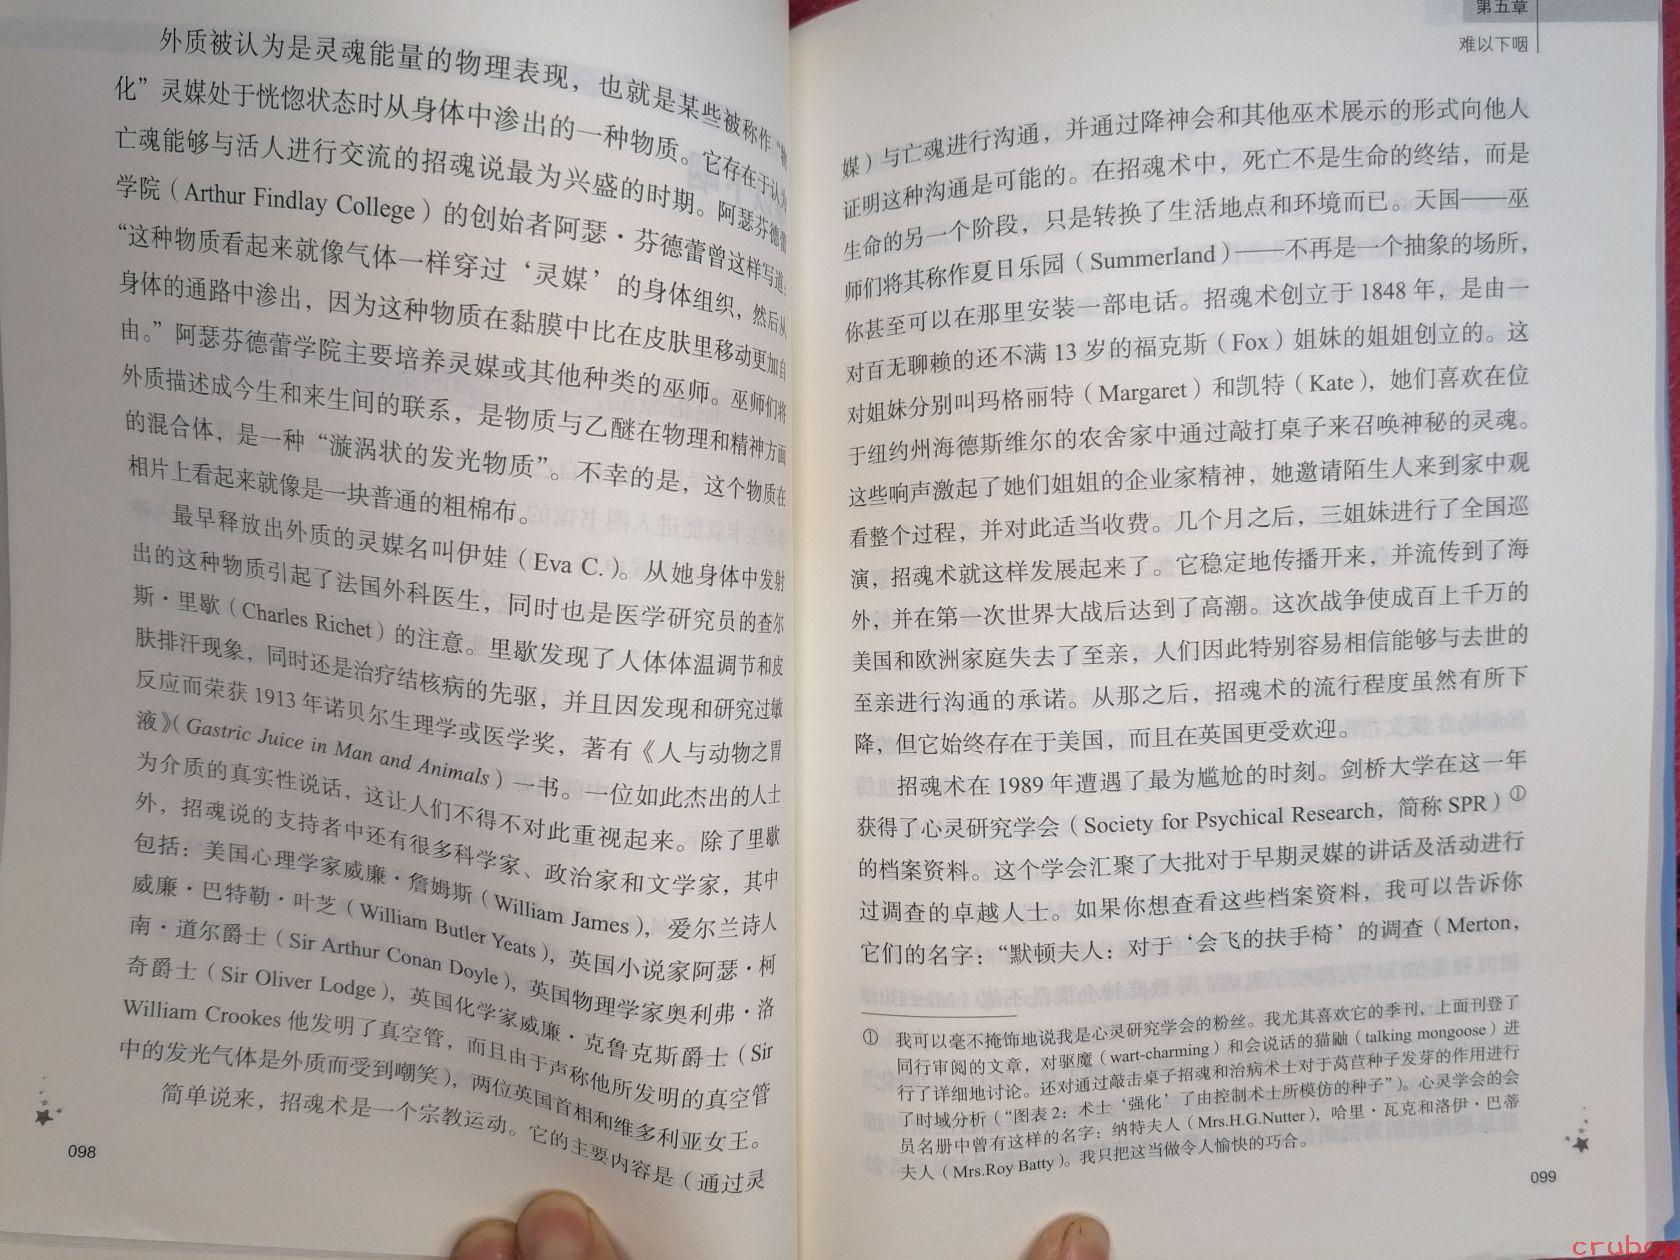 外质被认为是灵魂能量的物理表现，也就是某些被称作“物
化”灵媒处于恍惚状态时从身体中渗出的一种物质。它存在于认为
亡魂能够与活人进行交流的招魂说最为兴盛的时期。阿瑟芬德蕾
学院（Arthur Findlay College）的创始者阿瑟·芬德蕾曾这样写道：
“这种物质看起来就像气体一样穿过‘灵媒’的身体组织，然后从
身体的通路中渗出，因为这种物质在黏膜中比在皮肤里移动更加自
由。”阿瑟芬德蕾学院主要培养灵媒或其他种类的巫师。巫师们将
外质描述成今生和来生间的联系，是物质与乙醚在物理和精神方面
的混合体，是一种“漩涡状的发光物质”。不幸的是，这个物质在
相片上看起来就像是一块普通的粗棉布。
最早释放出外质的灵媒名叫伊娃（Eva C.）。从她身体中发射
出的这种物质引起了法国外科医生，同时也是医学研究员的查尔
斯·里歇（Charles Richet）的注意。里歇发现了人体体温调节和皮
肤排汗现象，同时还是治疗结核病的先驱，并且因发现和研究过敏
反应而荣获 1913 年诺贝尔生理学或医学奖，著有《人与动物之胃
液》（Gastric Juice in Man and Animals）一书。一位如此杰出的人士
为介质的真实性说话，这让人们不得不对此重视起来。除了里歇
外，招魂说的支持者中还有很多科学家、政治家和文学家，其中
包括：美国心理学家威廉·詹姆斯（William James），爱尔兰诗人
威廉·巴特勒·叶芝（William Butler Yeats），英国小说家阿瑟·柯
南·道尔爵士（Sir Arthur Conan Doyle），英国物理学家奥利弗·洛
奇爵士（Sir Oliver Lodge），英国化学家威廉·克鲁克斯爵士（Sir
William Crookes 他发明了真空管，而且由于声称他所发明的真空管
中的发光气体是外质而受到嘲笑），两位英国首相和维多利亚女王。
简单说来，招魂术是一个宗教运动。它的主要内容是（通过灵
098
第五章
难以下咽
媒）与亡魂进行沟通，并通过降神会和其他巫术展示的形式向他人
证明这种沟通是可能的。在招魂术中，死亡不是生命的终结，而是
生命的另一个阶段，只是转换了生活地点和环境而已。天国——巫
师们将其称作夏日乐园（Summerland）——不再是一个抽象的场所，
你甚至可以在那里安装一部电话。招魂术创立于 1848 年，是由一
对百无聊赖的还不满 13 岁的福克斯（Fox）姐妹的姐姐创立的。这
对姐妹分别叫玛格丽特（Margaret）和凯特（Kate），她们喜欢在位
于纽约州海德斯维尔的农舍家中通过敲打桌子来召唤神秘的灵魂。
这些响声激起了她们姐姐的企业家精神，她邀请陌生人来到家中观
看整个过程，并对此适当收费。几个月之后，三姐妹进行了全国巡
演，招魂术就这样发展起来了。它稳定地传播开来，并流传到了海
外，并在第一次世界大战后达到了高潮。这次战争使成百上千万的
美国和欧洲家庭失去了至亲，人们因此特别容易相信能够与去世的
至亲进行沟通的承诺。从那之后，招魂术的流行程度虽然有所下
降，但它始终存在于美国，而且在英国更受欢迎。
招魂术在 1989 年遭遇了最为尴尬的时刻。剑桥大学在这一年
获得了心灵研究学会（Society for Psychical Research，简称 SPR）①
的档案资料。这个学会汇聚了大批对于早期灵媒的讲话及活动进行
过调查的卓越人士。如果你想查看这些档案资料，我可以告诉你
它们的名字：“默顿夫人：对于‘会飞的扶手椅’的调查（Merton,
① 我可以毫不掩饰地说我是心灵研究学会的粉丝。我尤其喜欢它的季刊，上面刊登了
同行审阅的文章，对驱魔（wart-charming）和会说话的猫鼬（talking mongoose）进
行了详细地讨论。还对通过敲击桌子招魂和治病术士对于莴苣种子发芽的作用进行
了时域分析（“图表 2：术士‘强化’了由控制术士所模仿的种子”）。心灵学会的会
员名册中曾有这样的名字：纳特夫人（Mrs.H.G.Nutter），哈里·瓦克和洛伊·巴蒂
夫人（Mrs.Roy Batty）。我只把这当做令人愉快的巧合。
099